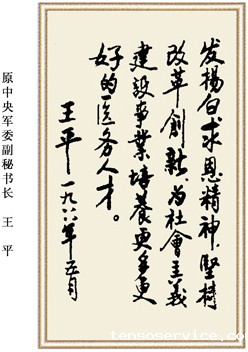 发揚白求恩精神，堅持
改革創新，为社會主義
建設事業培養更多更
好的医务人才。
王平 一九八六年五月
原中央军委副秘书长 王 平
tengoservice.com